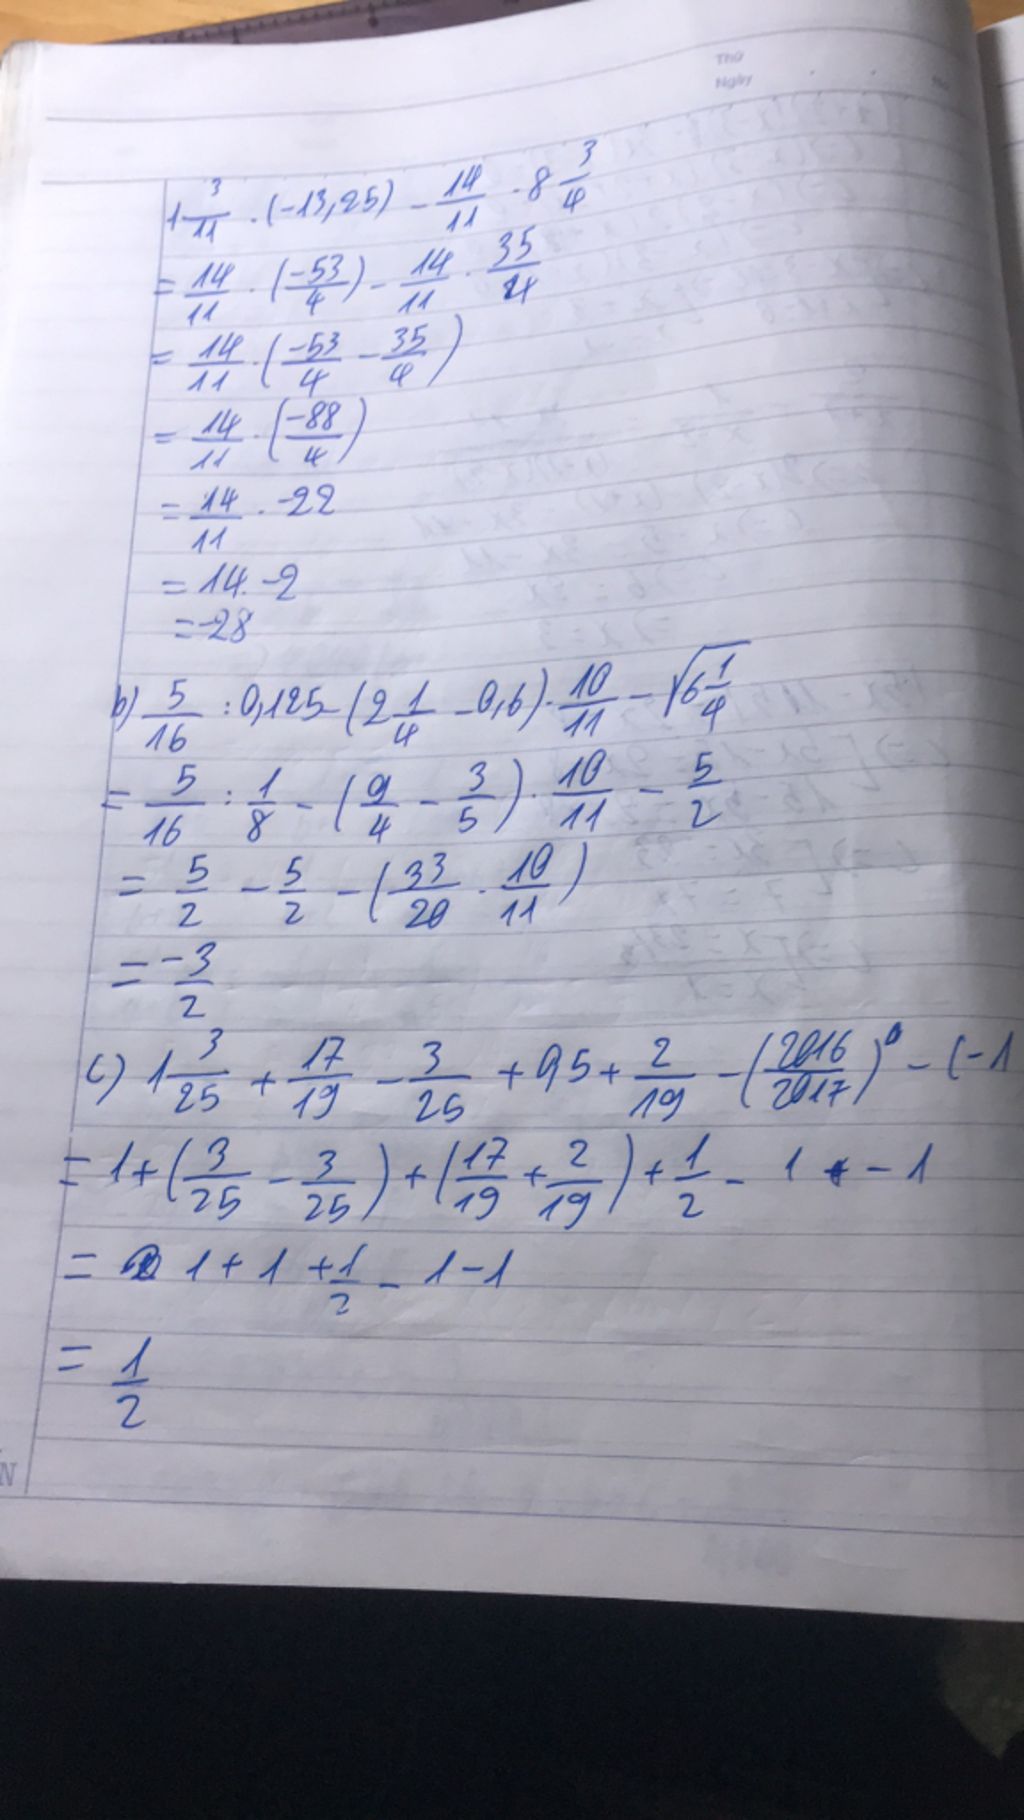 Thứ
Ngày
1 3/11 . (-13,25) - 14/11 . 8 3/4
= 14/11 . (-53/4) - 14/11 . 35/4
= 14/11 . (-53/4 - 35/4)
= 14/11 . (-88/4)
= 14/11 . -22
= 14. -2
= -28
b) 5/16 : 0,125 - (2 1/4 - 0,6) . 10/11 - √6 1/4
= 5/16 : 1/8 - (9/4 - 3/5) . 10/11 - 5/2
= 5/2 - 5/2 - (33/20 . 10/11)
= -3/2
c) 1 3/25 + 17/19 - 3/25 + 0,5 + 2/19 - (2016/2017)⁰ - (-1
= 1 + (3/25 - 3/25) + (17/19 + 2/19) + 1/2 - 1 - 1
= 1 + 1 + 1/2 - 1 - 1
= 1/2